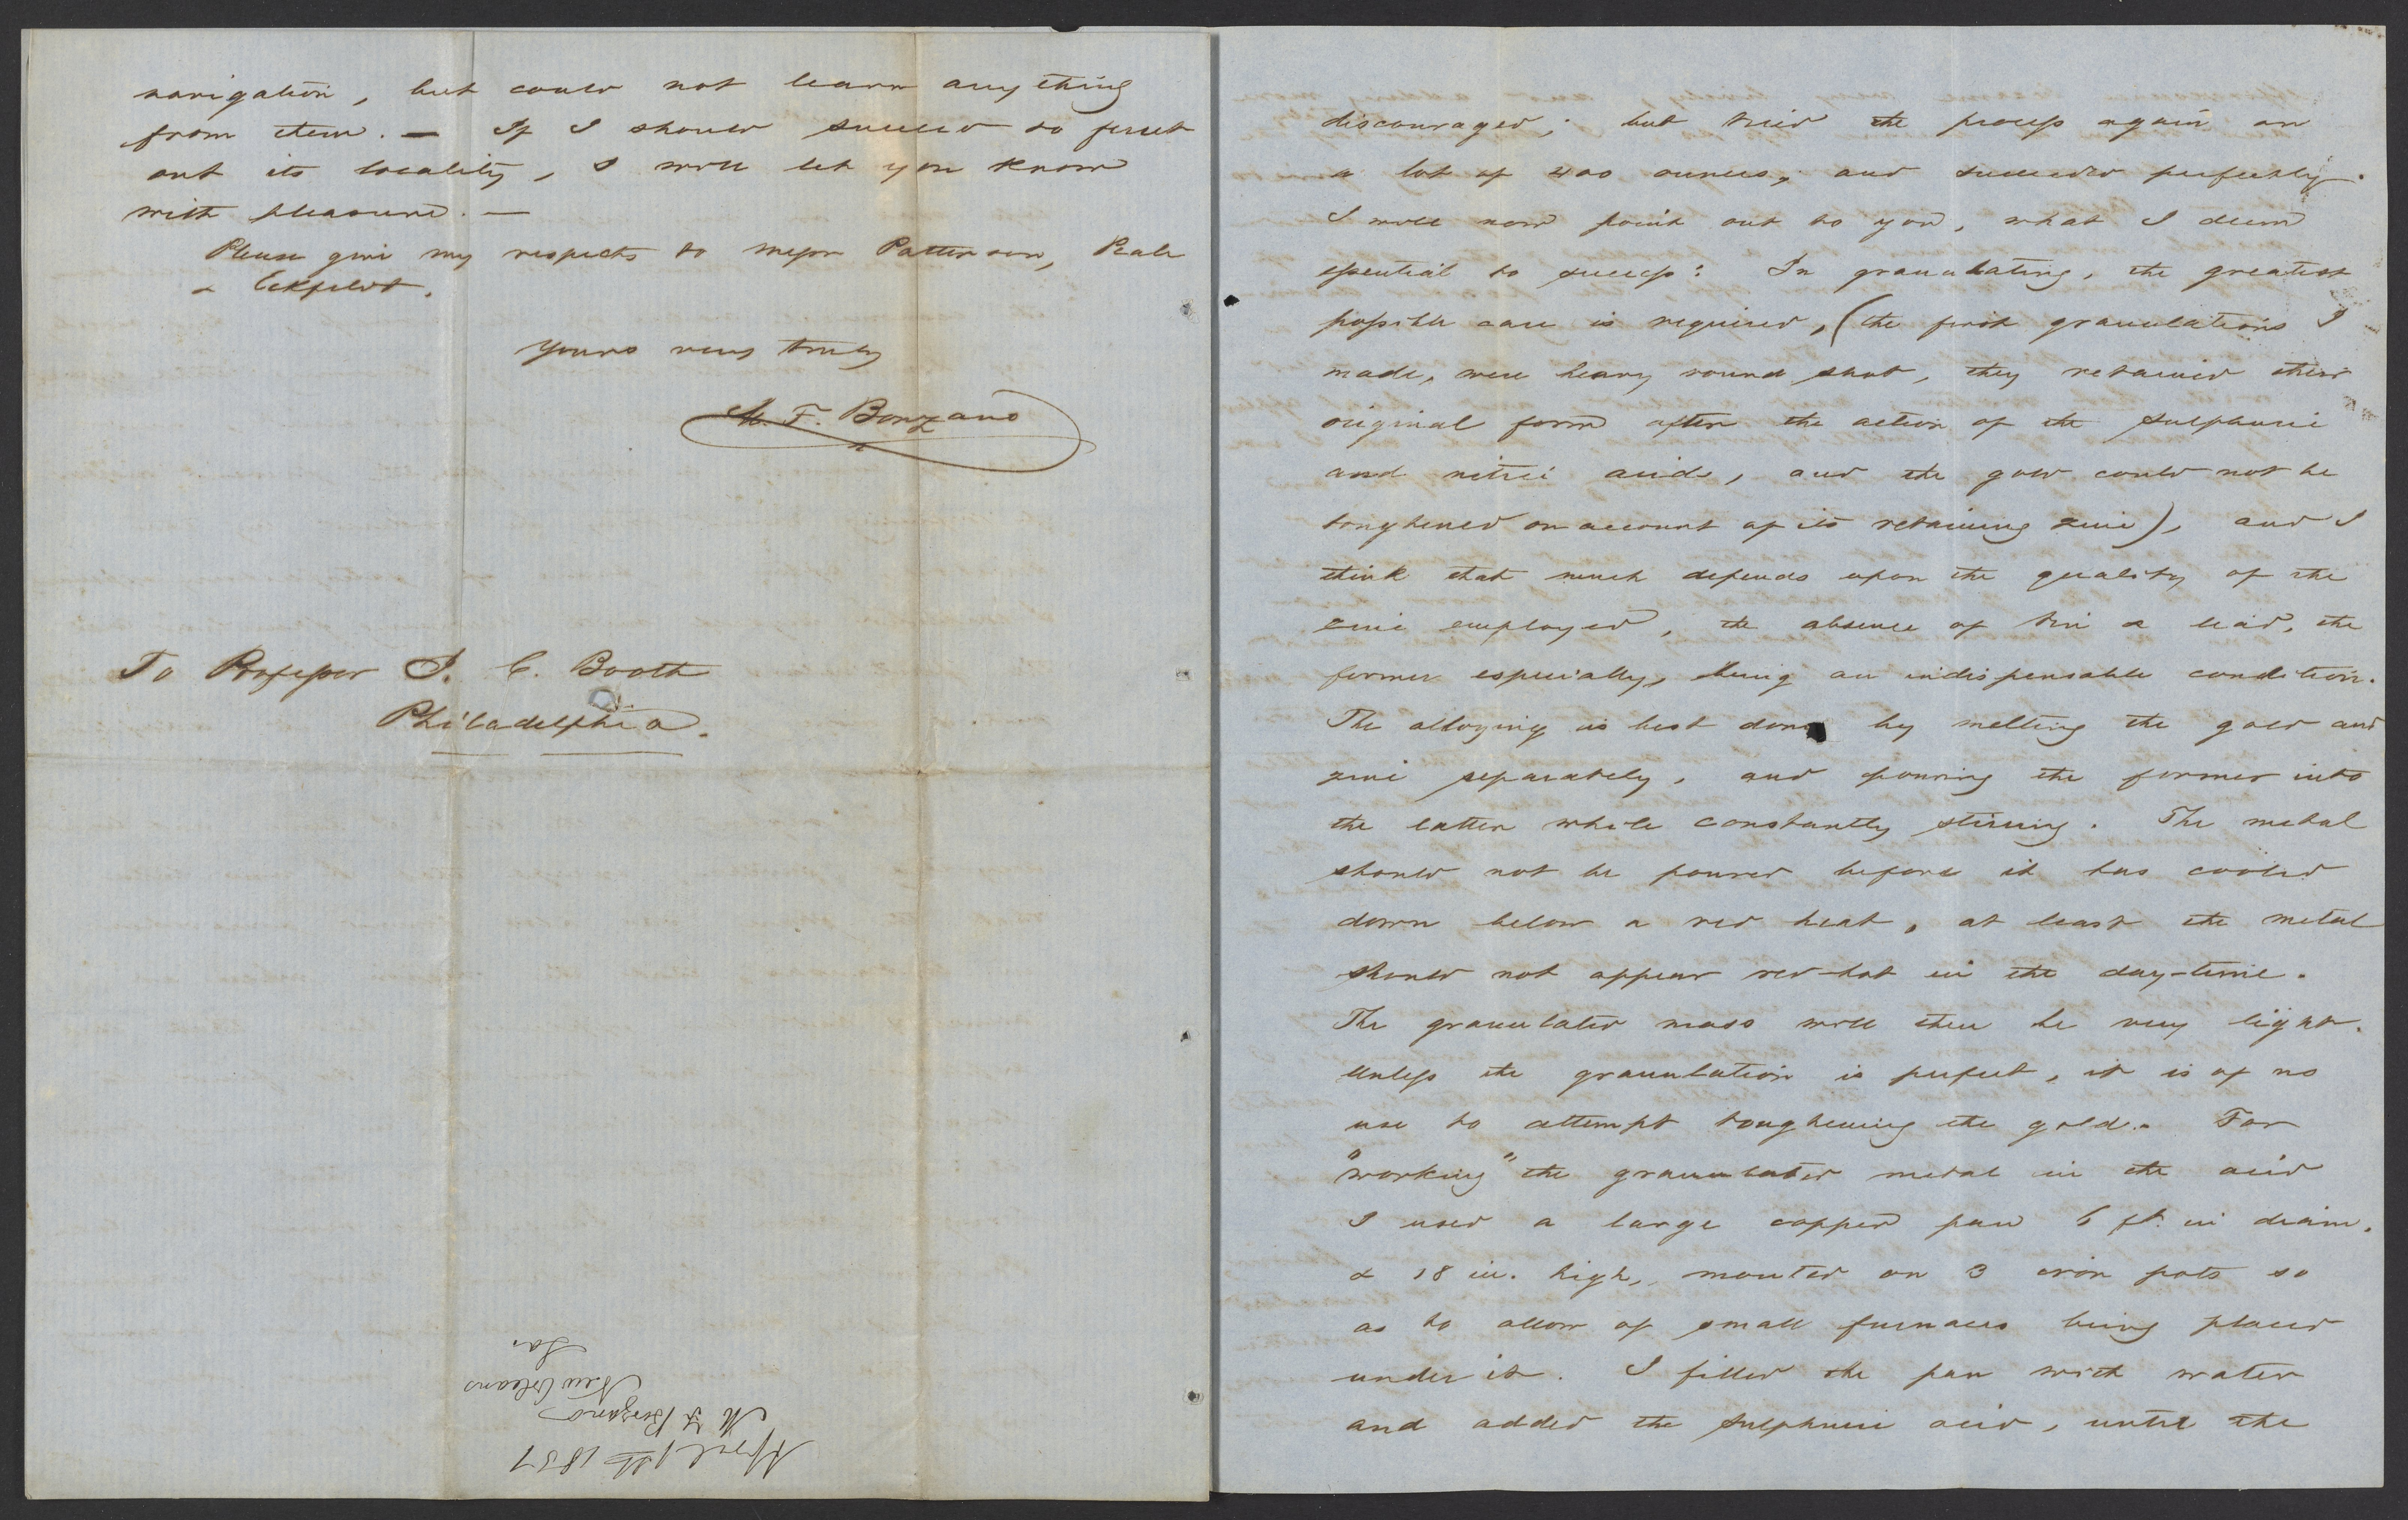 navigation, but could not learn any thing
from them. — If I should succeed to ferret
out its locality, I will let you know
with pleasure. —
Please give my respects to Messrs Patterson, Peale
& Eckfeldt.
Yours very truly
M. F. Bonzano
To Professor J. C. Booth
Philadelphia.
April 1st 1851
M F Bonzano
New Orleans
La.
discouraged; but tried the process again on
a lot of 400 ounces, and succeeded perfectly.
I will now point out to you, what I deem
essential to success: In granulating, the greatest
possible care is required, (the first granulations I
made, were heavy round shot, they retained their
original form after the action of the sulphuric
and nitric acids, and the gold could not be
toughened on account of its retaining zinc), and I
think that much depends upon the quality of the
zinc employed, the absence of tin & lead, the
former especially, being an indispensable condition.
The alloying is best done by melting the gold and
zinc separately, and pouring the former into
the latter while constantly stirring. The metal
should not be poured before it has cooled
down below a red heat, at least the metal
should not appear red-hot in the day-time.
The granulated mass will then be very light.
Unless the granulation is perfect, it is of no
use to attempt toughening the gold. For
"working" the granulated metal in the acid
I used a large copper pan 6 ft. in diam.
& 18 in. high, mounted on 3 iron pots so
as to allow of small furnaces being placed
under it. I filled the pan with water
and added the sulphuric acid, until the